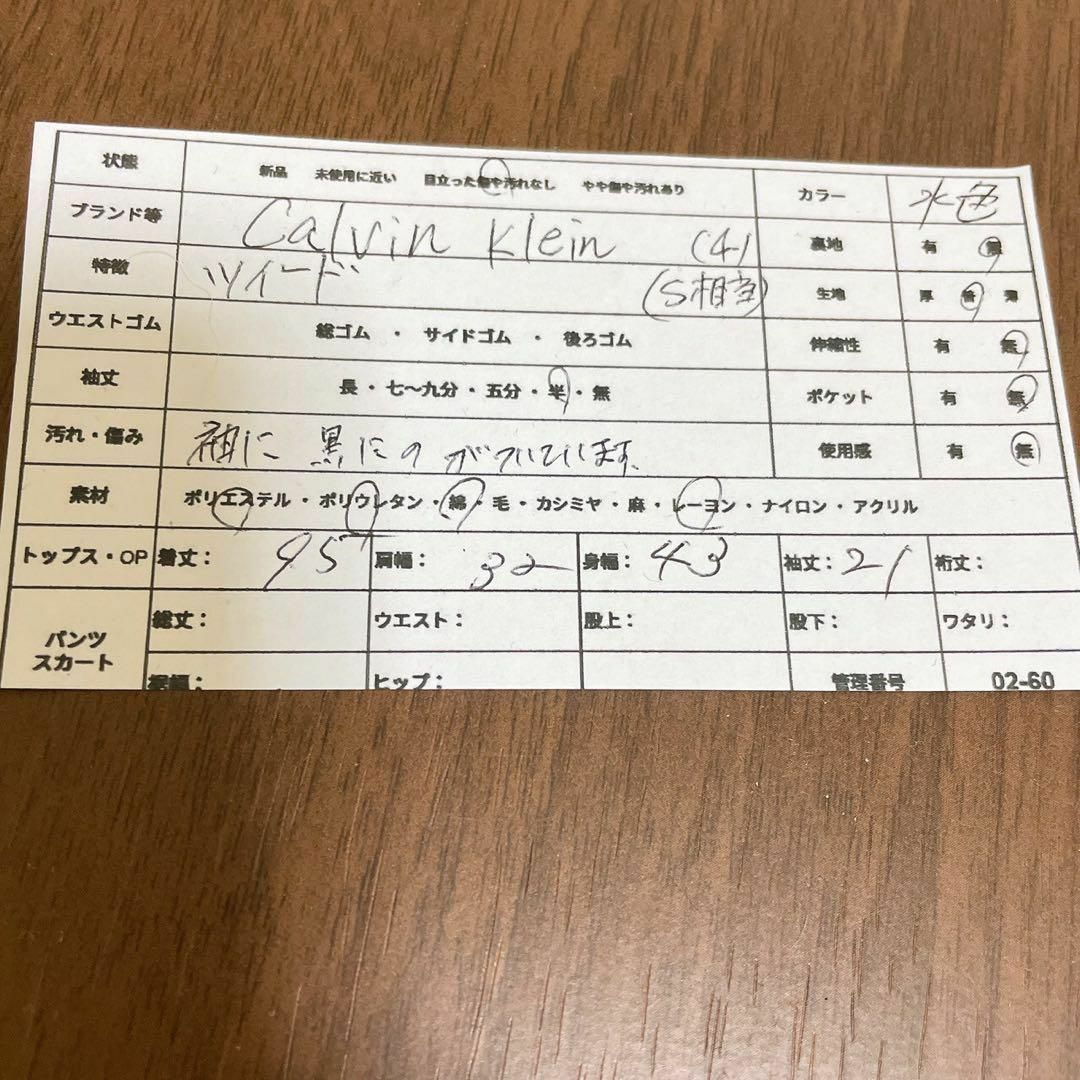 状態 新品 未使用に近い 目立った傷や汚れなし やや傷や汚れあり カラー 水色
ブランド等 Calvin Klein (4) 裏地 有 無
特徴 ツイード (S相当) 生地 厚 普 薄
ウエストゴム 総ゴム ・ サイドゴム ・ 後ろゴム 伸縮性 有 無
袖丈 長・七〜九分・五分・半・無 ポケット 有 無
汚れ・傷み 袖に 黒にのがついています、 使用感 有 無
素材 ポリエステル・ポリウレタン・綿・毛・カシミヤ・麻・レーヨン・ナイロン・アクリル
トップス・OP 着丈: 95 肩幅: 32 身幅: 43 袖丈: 21 裄丈:
パンツ スカート 総丈: ウエスト: 股上: 股下: ワタリ:
裾幅: ヒップ: 管理番号 02-60